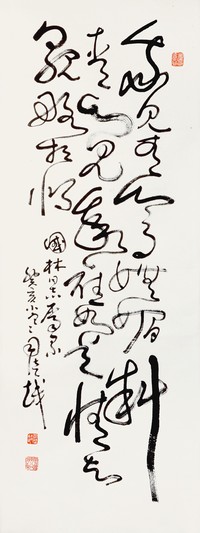 我見青山多嫵媚料
青山見我應如是情與
貌略相似
國林同志屬
癸亥